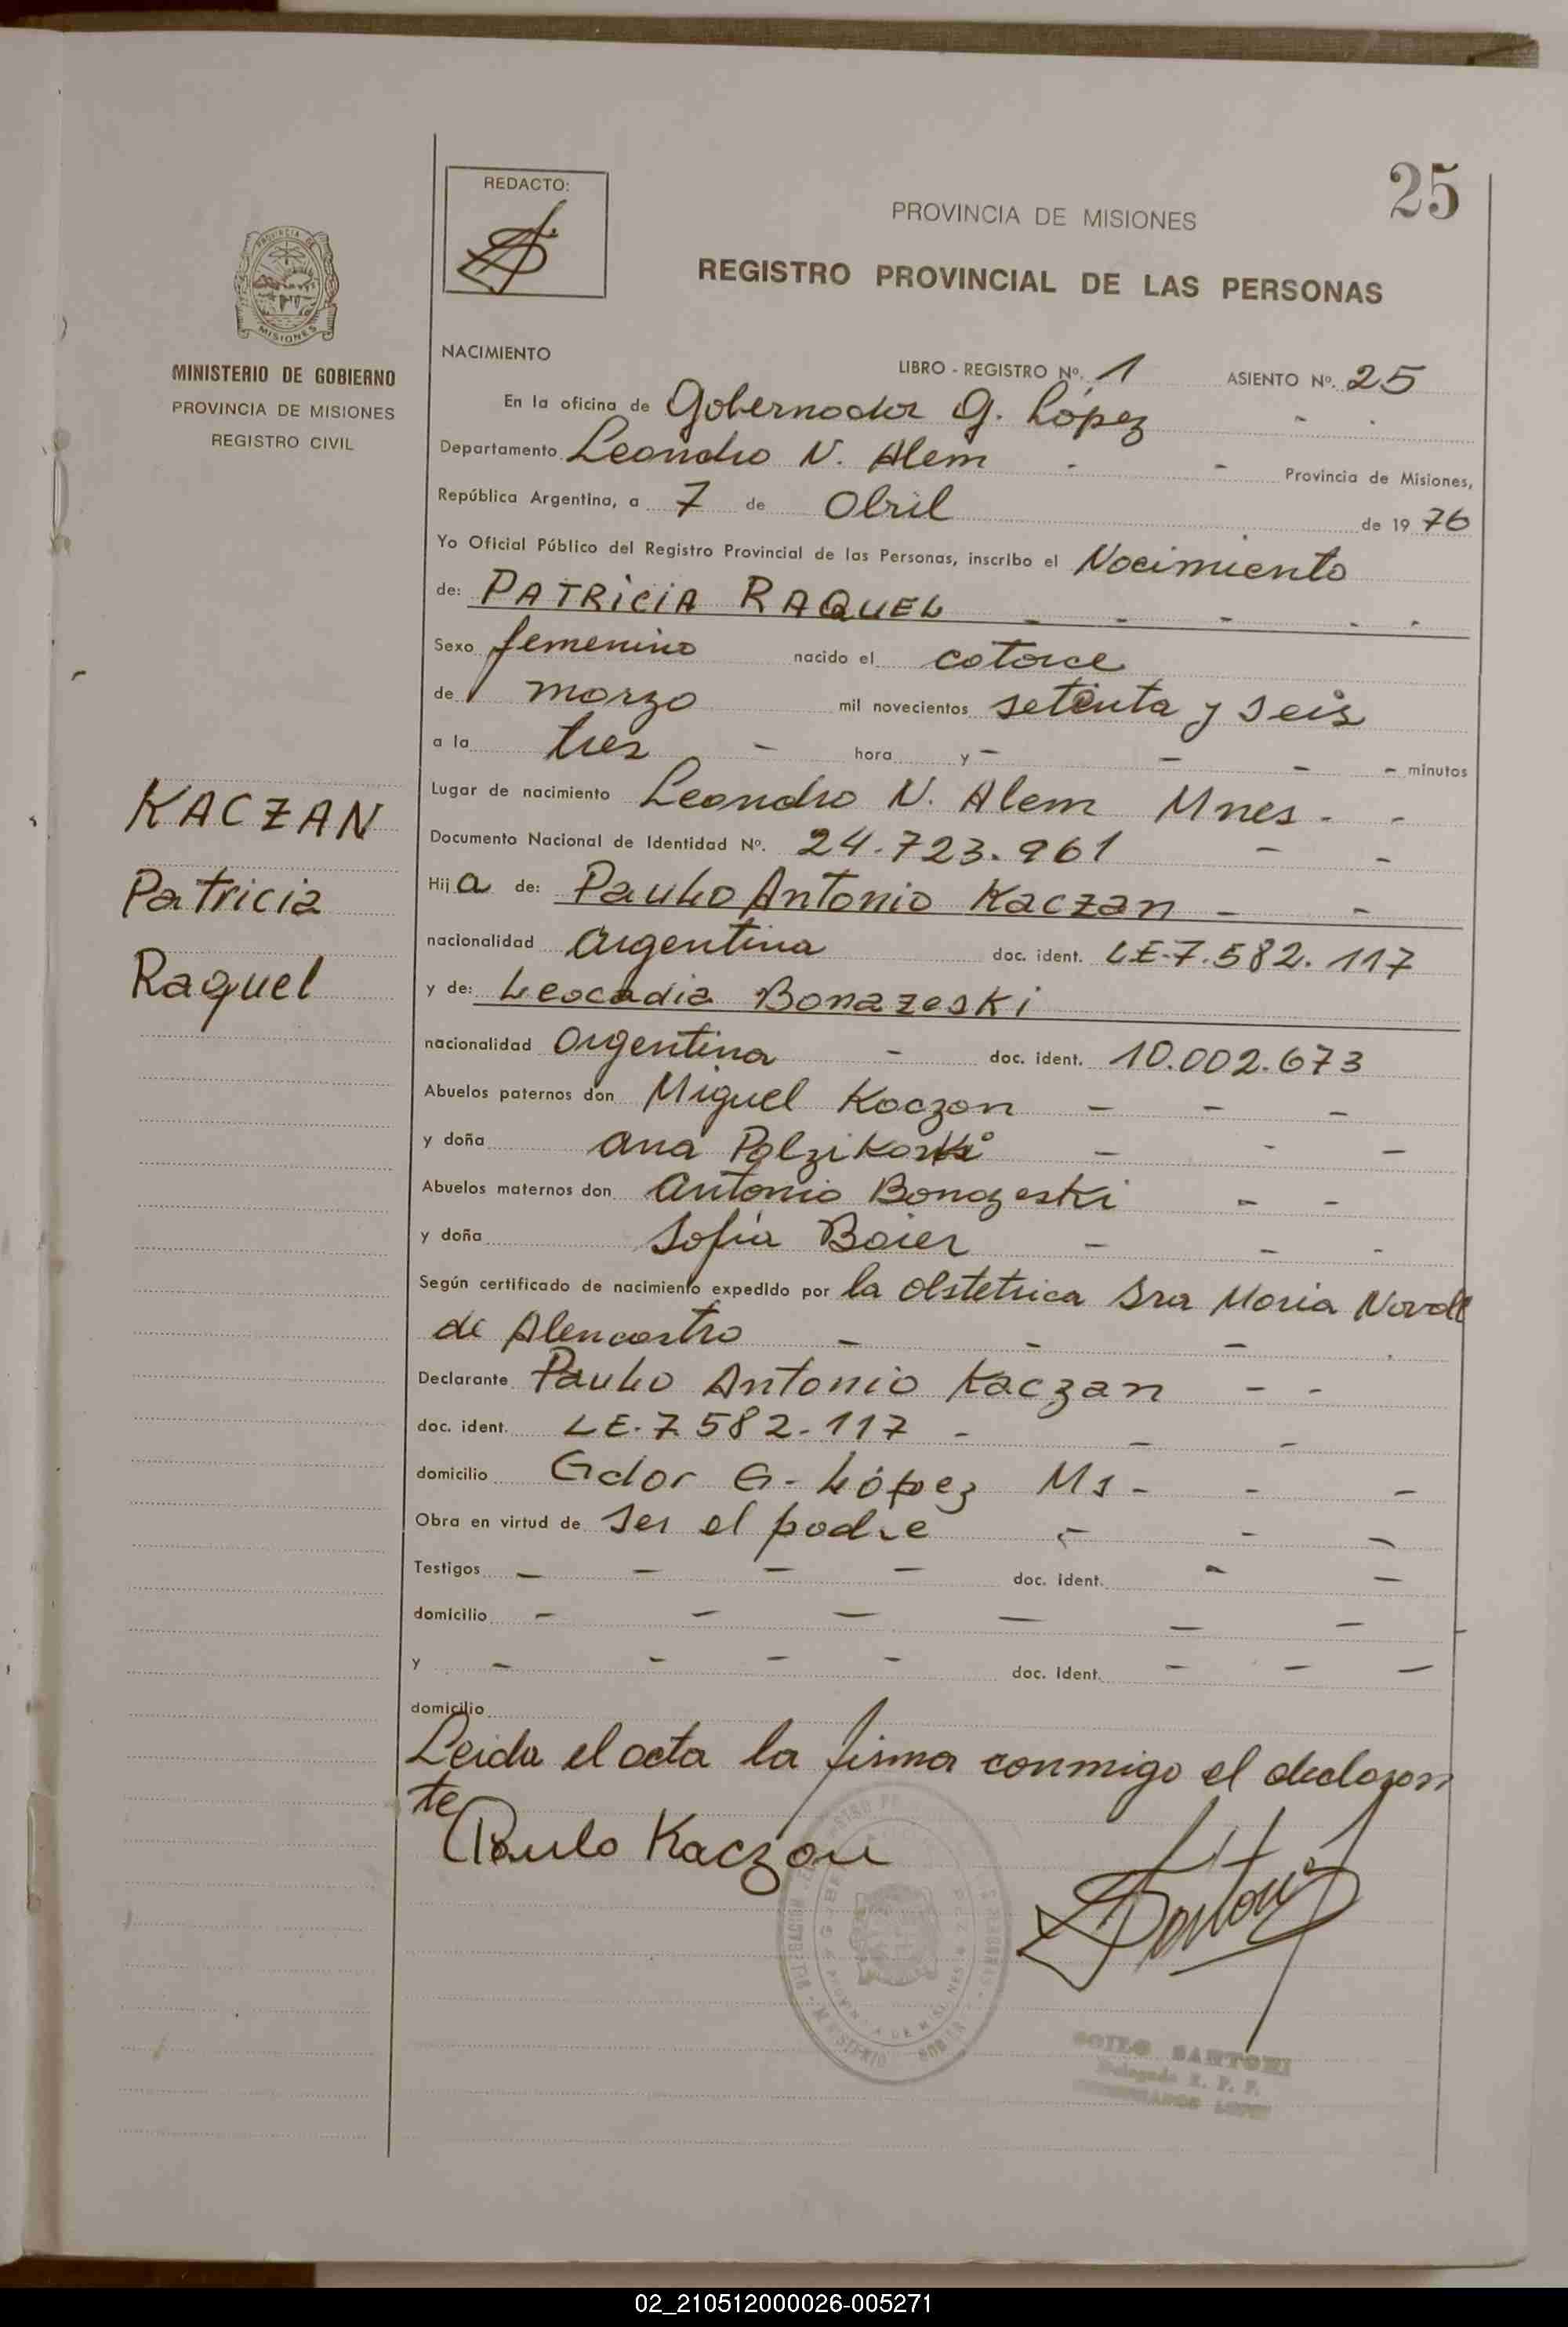 25
REDACTO:
PROVINCIA DE MISIONES
REGISTRO PROVINCIAL DE LAS PERSONAS
PROVINCIA DE
MISIONES
MINISTERIO DE GOBIERNO
PROVINCIA DE MISIONES
REGISTRO CIVIL
KACZAN
Patricia
Raquel
NACIMIENTO LIBRO - REGISTRO Nº. 1 ASIENTO Nº. 25
En la oficina de Gobernador G. López - -
Departamento Leandro N. Alem - - Provincia de Misiones,
República Argentina, a 7 de Abril de 19 76
Yo Oficial Público del Registro Provincial de las Personas, inscribo el Nacimiento
de: PATRICIA RAQUEL - - - - -
Sexo femenino nacido el catorce
de marzo mil novecientos setenta y seis
a la tres - hora y - - - - minutos
Lugar de nacimiento Leandro N. Alem Mnes - -
Documento Nacional de Identidad Nº. 24.723.961 - -
Hij a de: Paulo Antonio Kaczan - -
nacionalidad Argentina doc. ident. LE-7.582.117
y de: Leocadia Bonazeski
nacionalidad Argentina - doc. ident. 10.002.673
Abuelos paternos don Miguel Kaczan - - -
y doña Ana - - -
Abuelos maternos don Antonio Bonazeski - -
y doña Sofia Boier - - -
Según certificado de nacimiento expedido por la obstetrica Sra Maria
de Alencastro - - - -
Declarante Paulo Antonio Kaczan - -
doc. ident. LE-7.582-117 - - -
domicilio Gdor G- López Ms - - -
Obra en virtud de ser el padre - - -
Testigos - - - - doc. ident. - -
domicilio - - - - - -
y - - - - doc. ident. - - -
domicilio
Leida el acta la firma conmigo el declaran
te
Paulo Kaczan
SARTORI
Delegado R. P. P.
GOBERNADOR LOPEZ
02_210512000026-005271